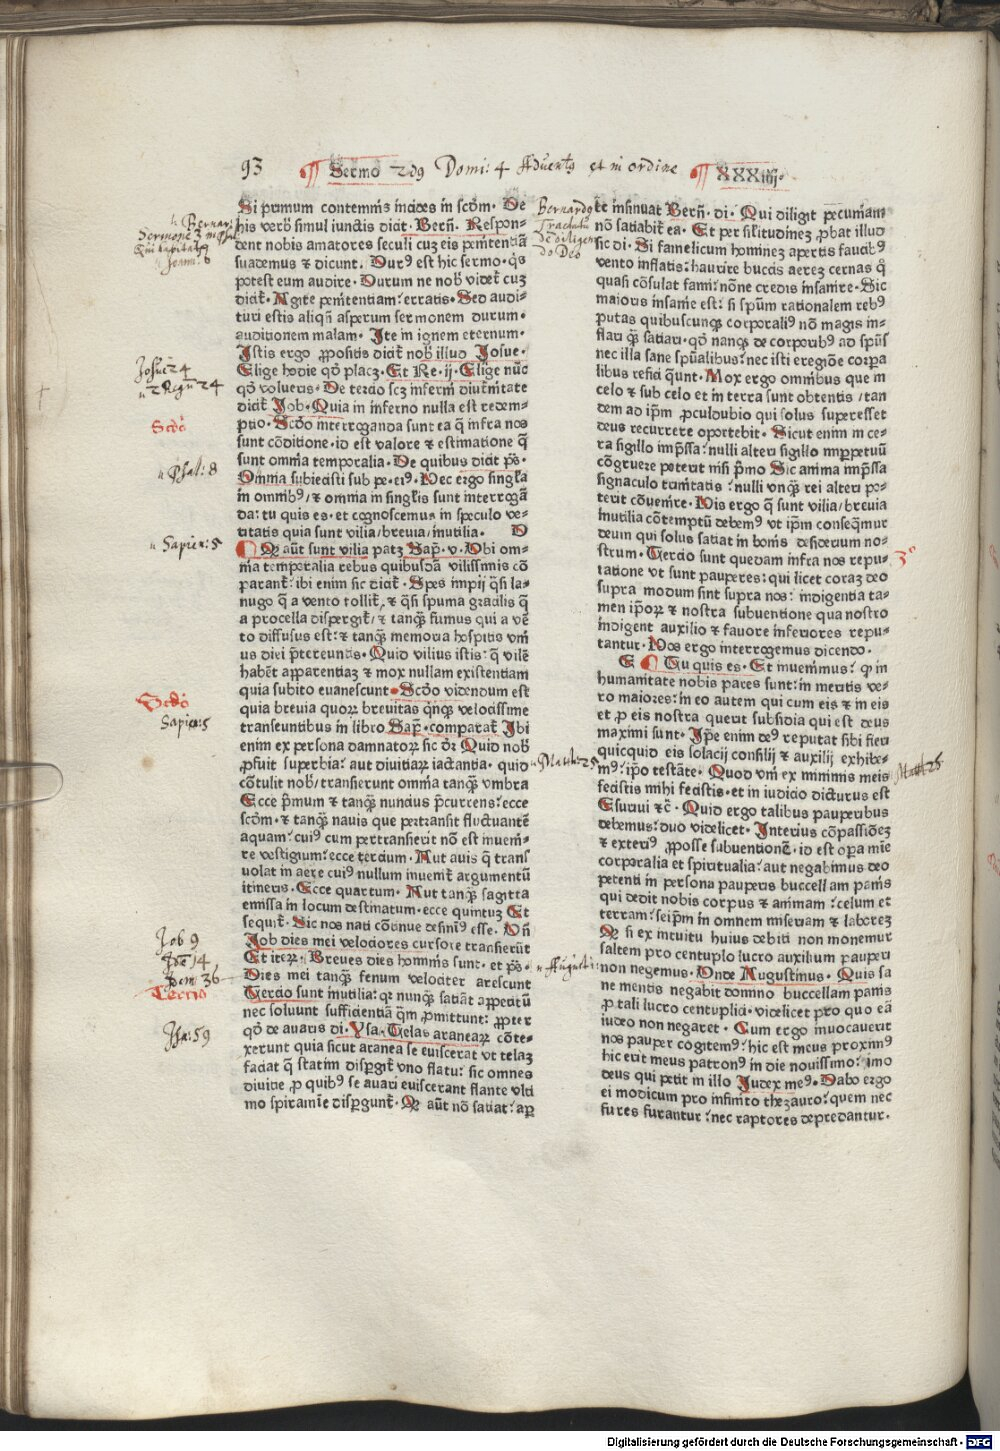 93 Sermo 2dꝰ Domi: 4 Aduentꝰ et in ordine XXXiiij.
Bernar:
Sermone 3
Qui habitat
Joann: 6
Josue 24
2 Regū 24
Scdo
Psal: 8
Sapien: 5
Scdo
Sapien: 5
Job 9
Jdē 14
Psal: 36
Tercio
Isa: 59
Si primum contemnis incides in scōm. De
his vero simul iunctis dicit. Berñ. Respon-
dent nobis amatores seculi cuȝ eis penitentiā
suademus ⁊ dicunt. Durꝰ est hic sermo. qͥs
potest eum audire. Durum ne nob̄ videt̄ cuȝ
dicit̄. Agite penitentiam: erratis. Sed audi-
turi estis aliqn̄ asperum sermonem durum.
auditionem malam. Ite in ignem eternum.
Istis ergo ꝓpositis dicit̄ nob̄ illud Josue.
Elige hodie qd̄ placȝ. Et Re. ij. Elige nūc
qd̄ volueris. De tercio scȝ inferni diut̄nitate
dicit̄ Job. Quia in inferno nulla est redem-
ptio. Scd̄o interroganda sunt ea q̄ infra nos
sunt cōditione. id est valore ⁊ estimatione q̄
sunt omnia temporalia. De quibus dicit ps̄.
Omnia subiecisti sub pe. eiꝰ. Nec ergo singl̄a
in omnibꝰ/ ⁊ omnia in singl̄is sunt interrogā
da: tu quis es. et cognoscemus in speculo ve-
ritatis quia sunt vilia/ breuia/ inutilia. D
Qͥ aūt sunt vilia patȝ Sap̄. v. Vbi om-
nia temperalia rebus quibusdā vilissimis cō
parant̄. ibi enim sic dicit̄. Spes impij q̄si la-
nugo q̄ a vento tollit̄, ⁊ q̄si spuma gracilis q̄
a procella dispergit̄/ ⁊ tanqȝ fumus qui a vē
to diffusus est: ⁊ tanqȝ memoria hospitis vni
us diei p̄tereuntis. Quid vilius istis: q̄ vilē
habēt apparentiaȝ ⁊ mox nullam existentiam
quia subito euanescunt. Scd̄o videndum est
quia breuia quoꝝ breuitas qͥnqȝ velocissime
transeuntibus in libro Sap̄. comparat̄ Ibi
enim ex persona damnatoꝝ sic dr̄. Quid nob̄
ꝓfuit superbia: aut diuitiaꝝ iactantia. quid
cōtulit nob̄/ transierunt omnia tanqȝ vmbra
Ecce p̄mum ⁊ tanqȝ nuncius p̄currens: ecce
scōm. ⁊ tanqȝ nauis que pertransit fluctuantē
aquam: cuiꝰ cum pertransierit nō est inueni-
re vestigium: ecce tercium. Aut auis q̄ trans
uolat in aere cuiꝰ nullum inuenit̄ argumentū
itineris. Ecce quartum. Aut tanqȝ sagitta
emissa in locum destinatum. ecce quintuȝ Et
sequit̄. Sic nos nati cōtinue desiniꝰ esse. Vn̄
Job dies mei velociores cursore transierūt
Et iteꝝ. Breues dies hominis sunt. et ps̄.
Dies mei tanqȝ fenum velociter arescunt
Tercio sunt inutilia: qꝛ nunqȝ satiāt appetitū
nec soluunt sufficientiā qͣm ꝓmittunt: ꝓpter
qd̄ de auaris di. Ysa. Telas araneaꝝ cōte-
xerunt quia sicut aranea se euiscerat vt telaȝ
faciat q̄ statim disp̄git̄ vno flatu: sic omnes
diuitie ꝓ quibꝰ se auari euiscerant flante vlti
mo spiramīe disp̄gunt̄. Qͥ aūt nō satiāt: aꝑ
Bernardꝰ
Tractatu
de diligen
do Deo
Math: 25
August:
te insinuat Berñ. di. Qui diligit pecuniam
nō satiabit̄ ea. Et per sil̄itudineȝ ꝓbat illud
sic di. Si famelicum homineȝ apertis faucibꝰ
vento inflatis: haurire buccis aereȝ cernas qͥ
quasi cōsulat fami: nōne credis insanire. Sic
maioris insanie est: si sp̄um rationalem rebꝰ
putas quibuscunqȝ corporalibꝰ nō magis in-
flari qȝ satiari. qd̄ nanqȝ de corporibꝰ ad sp̄us
nec illa sane sp̄ualibus: nec isti eregiōe corpa
libus refici q̄unt. Mox ergo omnibus que in
celo ⁊ sub celo et in terra sunt obtentis/ tan
dem ad ip̄m ꝓculdubio qui solus superesset
deus recurrere oportebit. Sicut enim in ce-
ra sigillo imp̄ssa: nulli alteri sigillo imperpetuū
cōgruere poterit nisi p̄mo Sic anima imp̄ssa
signaculo trinitatis: nulli vnqȝ rei alteri po-
terit cōuenire. His ergo q̄ sunt vilia/ breuia
inutilia cōtemptū debemꝰ vt ip̄m conseqͣmur
deum qui solus satiat in bonis desiderium no-
strum. Tercio sunt quedam infra nos repu-
tatione vt sunt pauperes: qui licet coraȝ deo
supra modum sint supra nos: indigentia ta-
men ip̄oꝝ ⁊ nostra subuentione qua nostro
indigent auxilio ⁊ fauore inferiores repu-
tantur. Nos ergo interrogemus dicendo.
E Tu quis es. Et inuenimus: qꝫ in
humanitate nobis pares sunt: in meritis ve-
ro maiores: in eo autem qui cum eis ⁊ in eis
et ꝓ eis nostra querit subsidia qui est deus
maximi sunt. Ip̄e enim deꝰ reputat sibi fieri
quicquid eis solacij consilij ⁊ auxilij exhibe-
mꝰ: ip̄o testāte. Quod vni ex minimis meis
fecistis mihi fecistis. et in iudicio dicturus est
Esuriui ⁊c̄. Quid ergo talibus pauperibus
debemus: duo videlicet. Interius cōpassiōeȝ
⁊ exteriꝰ ꝓ posse subuentionē. id est oꝑa mīe
corporalia et spiritualia: aut negabimus deo
petenti in persona pauperis buccellam panis
qui dedit nobis corpus ⁊ animam: celum et
terram: seip̄m in omnem miseriam ⁊ laboreȝ
Qͥ si ex intuitu huius debiti non monemur
saltem pro centuplo lucro auxilium pauperi
non negemus. Vnde Augustinus. Quis sa
ne mentis negabit domino buccellam panis
ꝓ tali lucro centuplici. videlicet pro quo eā
iudeo non negaret. Cum ergo inuocauerit
nos pauper cogitemꝰ: hic est meus proximꝰ
hic erit meus patronꝰ in die nouissimo: imo
deus qui petit in illo Judex meꝰ. Dabo ergo
ei modicum pro infinito thezauro: quem nec
fures furantur: nec raptores depredantur.
3º
Math 25
Digitalisierung gefördert durch die Deutsche Forschungsgemeinschaft - DFG